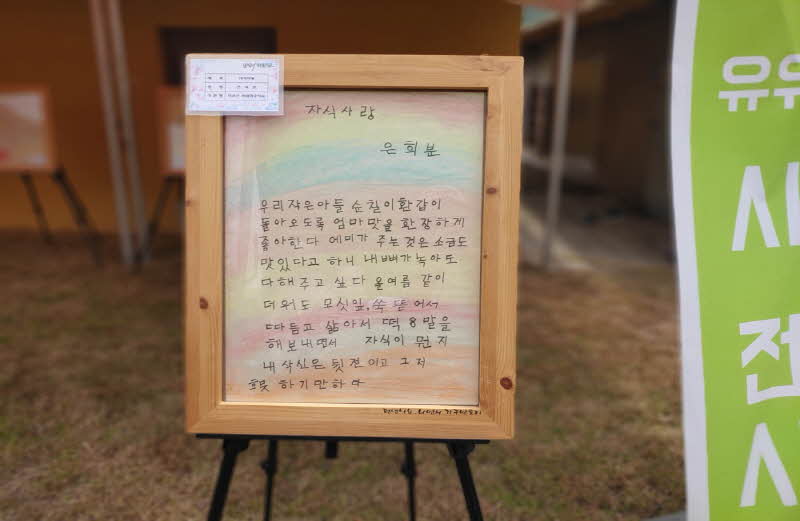 자식사랑
은희분
우리작은아들 순칠이환갑이
돌아오도록 엄마맛을 환장하게
좋아한다 에미가 주는것은 소금도
맛있다고 하니 내뼈가녹아도
다해주고 싶다 올여름 같이
더위도 모싯잎,쑥 뜯어서
따듬고 삶아서 떡 8말을
해보내면서 자식이 뭔지
내 삭신은 뒷전이고 그저
흐뭇 하기만하다
유위
시
전
시